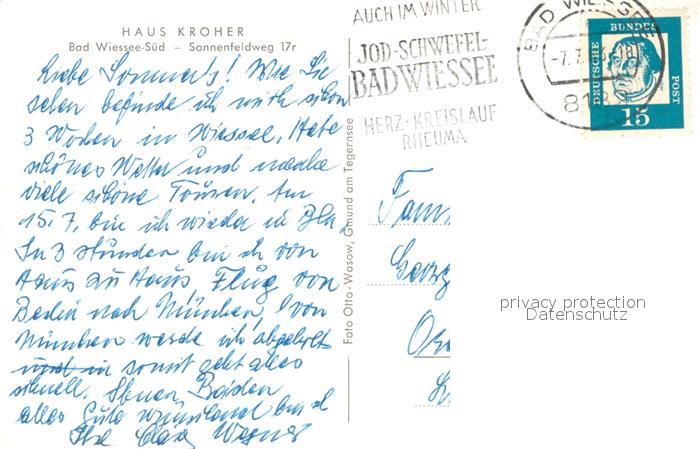 HAUS KROHER
Bad Wiessee-Süd – Sannenfeldweg 17r
Liebe Sommer's! Wie Sie
sehen befinde ich mich schon
3 Wochen in Wiessee, Habe
schönes Wetter und mache
viele schöne Touren. Am
15.7. bin ich wieder in Bln.
In 3 Stunden bin ich von
Haus zu Haus, Flug von
Berlin nach München, von
München werde ich abgeholt
somit geht alles
schnell. Ihnen Beiden
alles Gute wünschend bin ich
Ihre Wegner
Foto Otto-Wasow, Gmund am Tegernsee
AUCH IM WINTER
JOD-SCHWEFEL-
BAD WIESSEE
HERZ-KREISLAUF
RHEUMA
BAD WIESSEE
-7.7.
18
DEUTSCHE
BUNDES
POST
15
Fam
Georg
privacy protection
Datenschutz